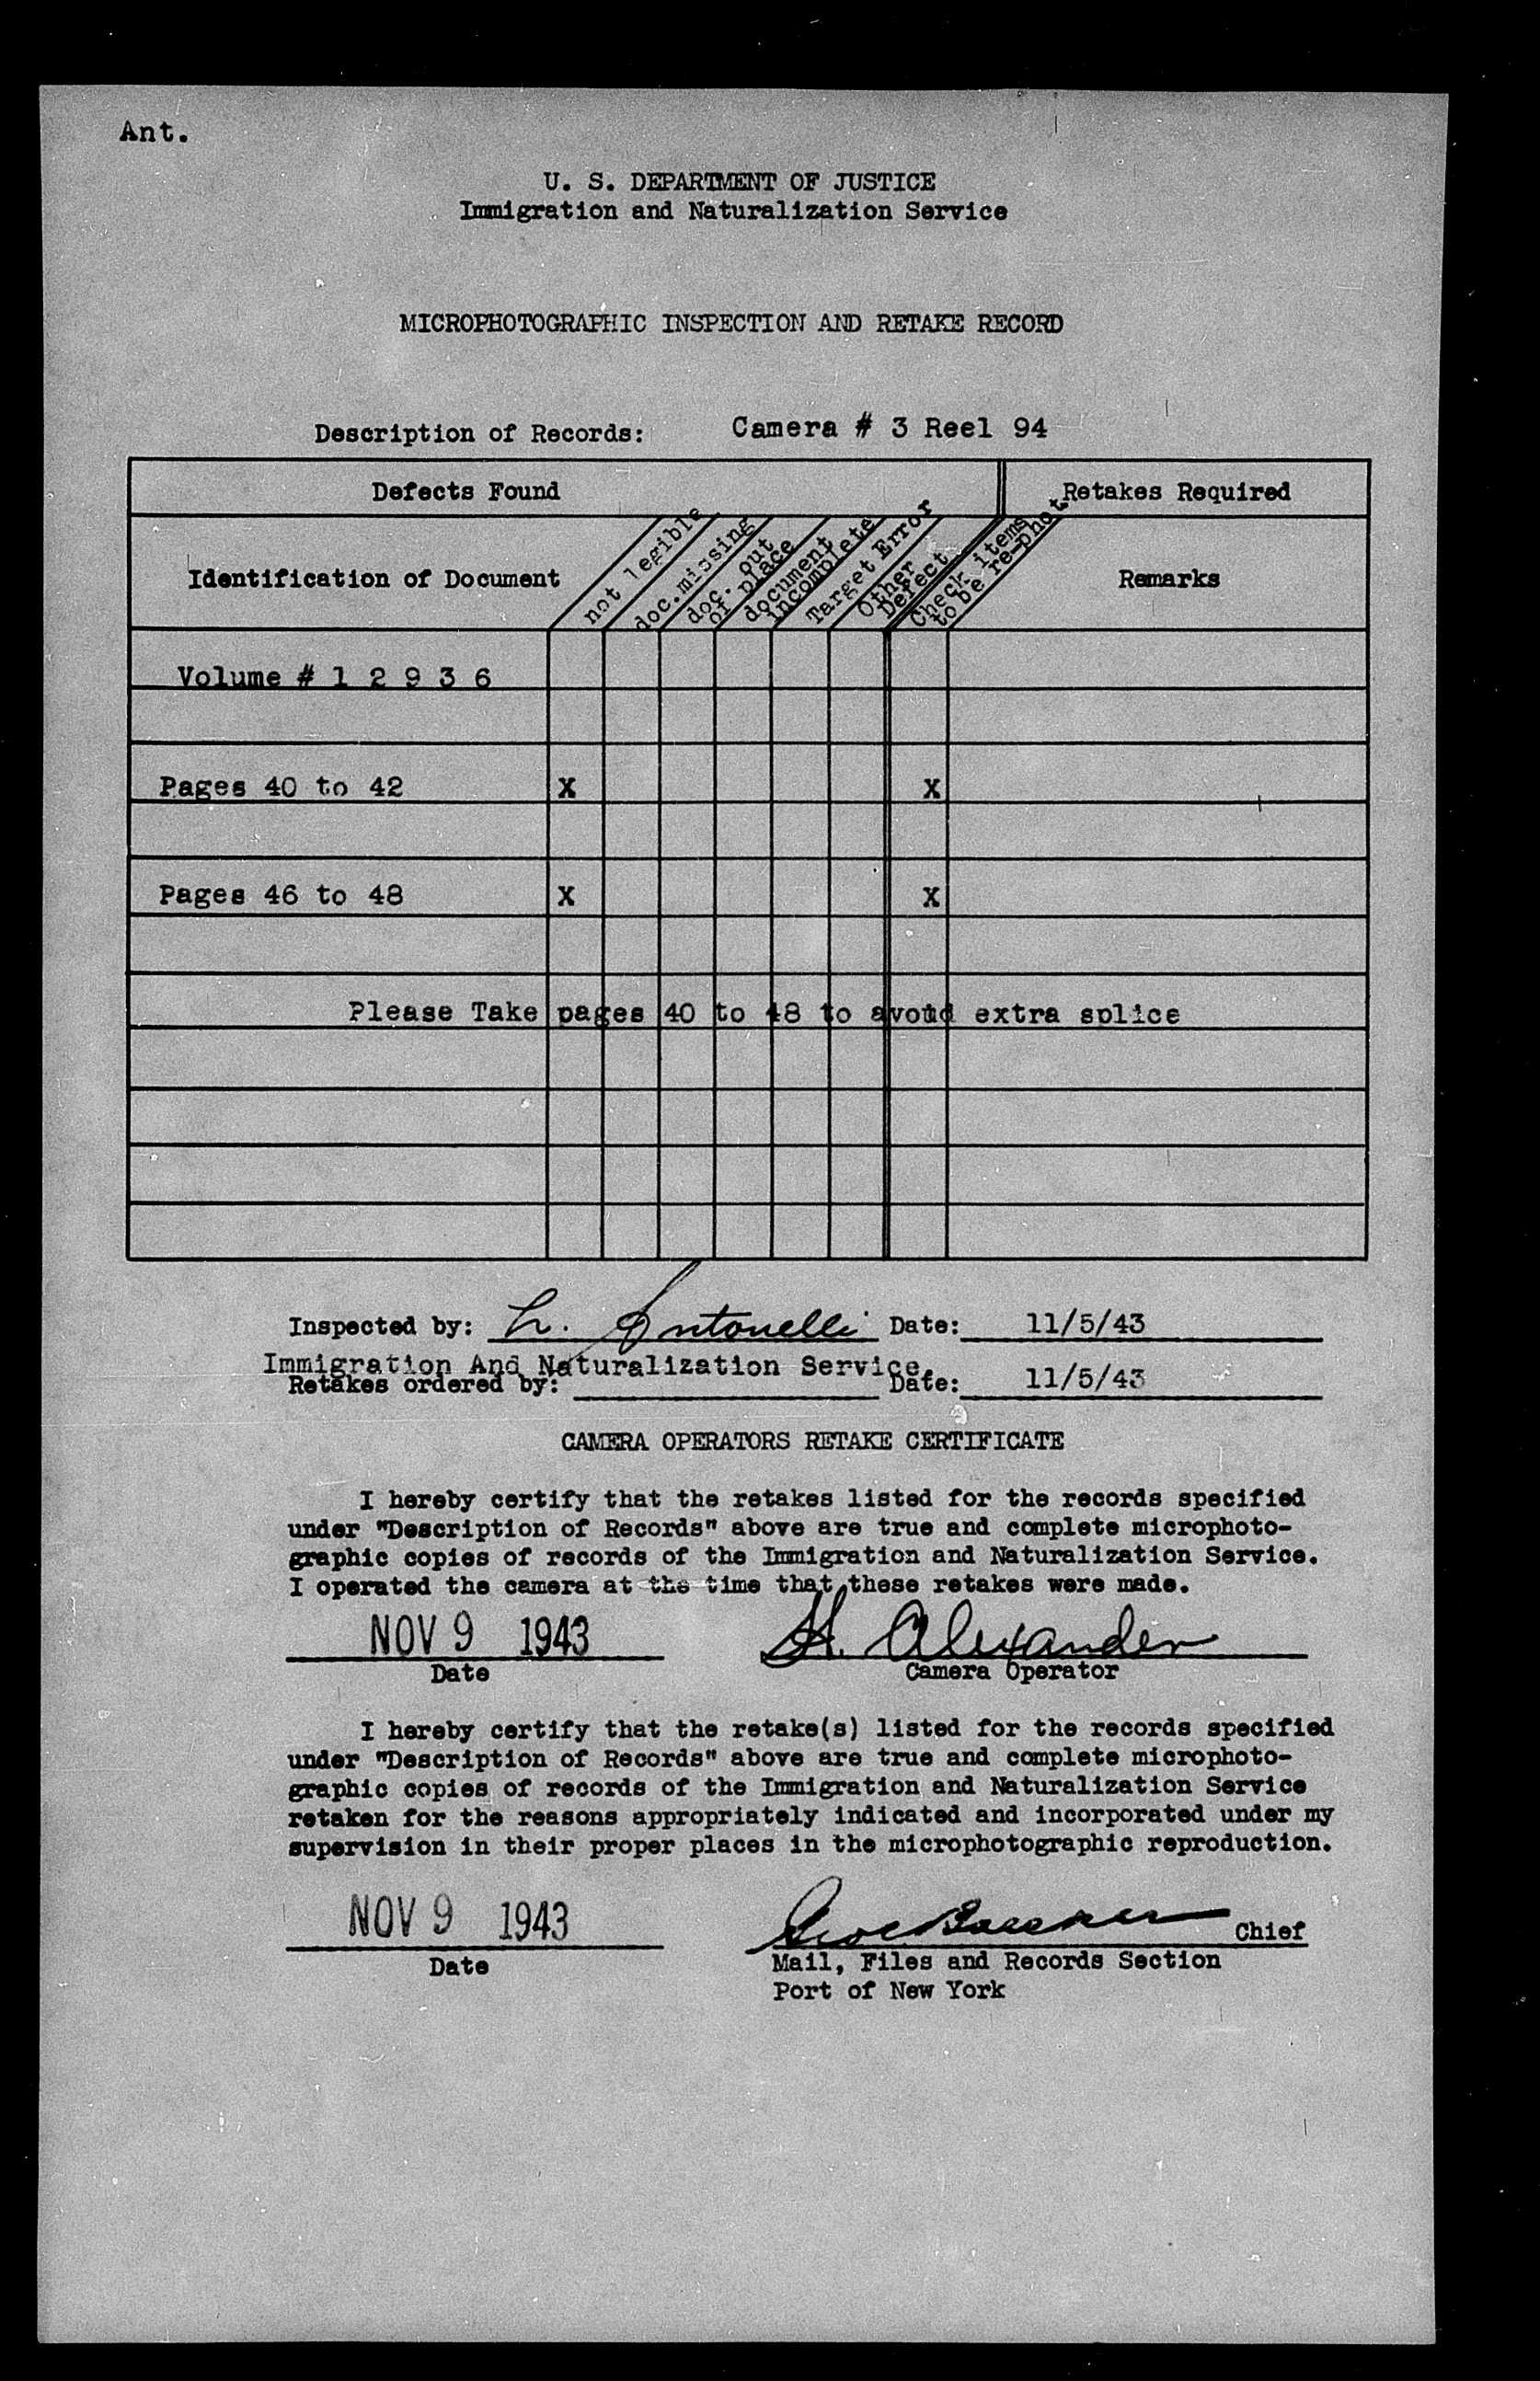 Ant.
U. S. DEPARTMENT OF JUSTICE
Immigration and Naturalization Service
MICROPHOTOGRAPHIC INSPECTION AND RETAKE RECORD
Description of Records: Camera # 3 Reel 94
Defects Found
Retakes Required
Identification of Document
not legible
doc.missing
doc. out
of place
document
incomplete
Target Error
Other
Defect
Check items
to be re-phot
Remarks
Volume # 1 2 9 3 6
Pages 40 to 42 X X
Pages 46 to 48 X X
Please Take pages 40 to 48 to avoid extra splice
Inspected by: L. Antonelli Date: 11/5/43
Immigration And Naturalization Service.
Retakes ordered by: Date: 11/5/43
CAMERA OPERATORS RETAKE CERTIFICATE
I hereby certify that the retakes listed for the records specified
under "Description of Records" above are true and complete microphoto-
graphic copies of records of the Immigration and Naturalization Service.
I operated the camera at the time that these retakes were made.
NOV 9 1943 H. Alexander
Date Camera Operator
I hereby certify that the retake(s) listed for the records specified
under "Description of Records" above are true and complete microphoto-
graphic copies of records of the Immigration and Naturalization Service
retaken for the reasons appropriately indicated and incorporated under my
supervision in their proper places in the microphotographic reproduction.
NOV 9 1943 Chief
Date Mail, Files and Records Section
Port of New York